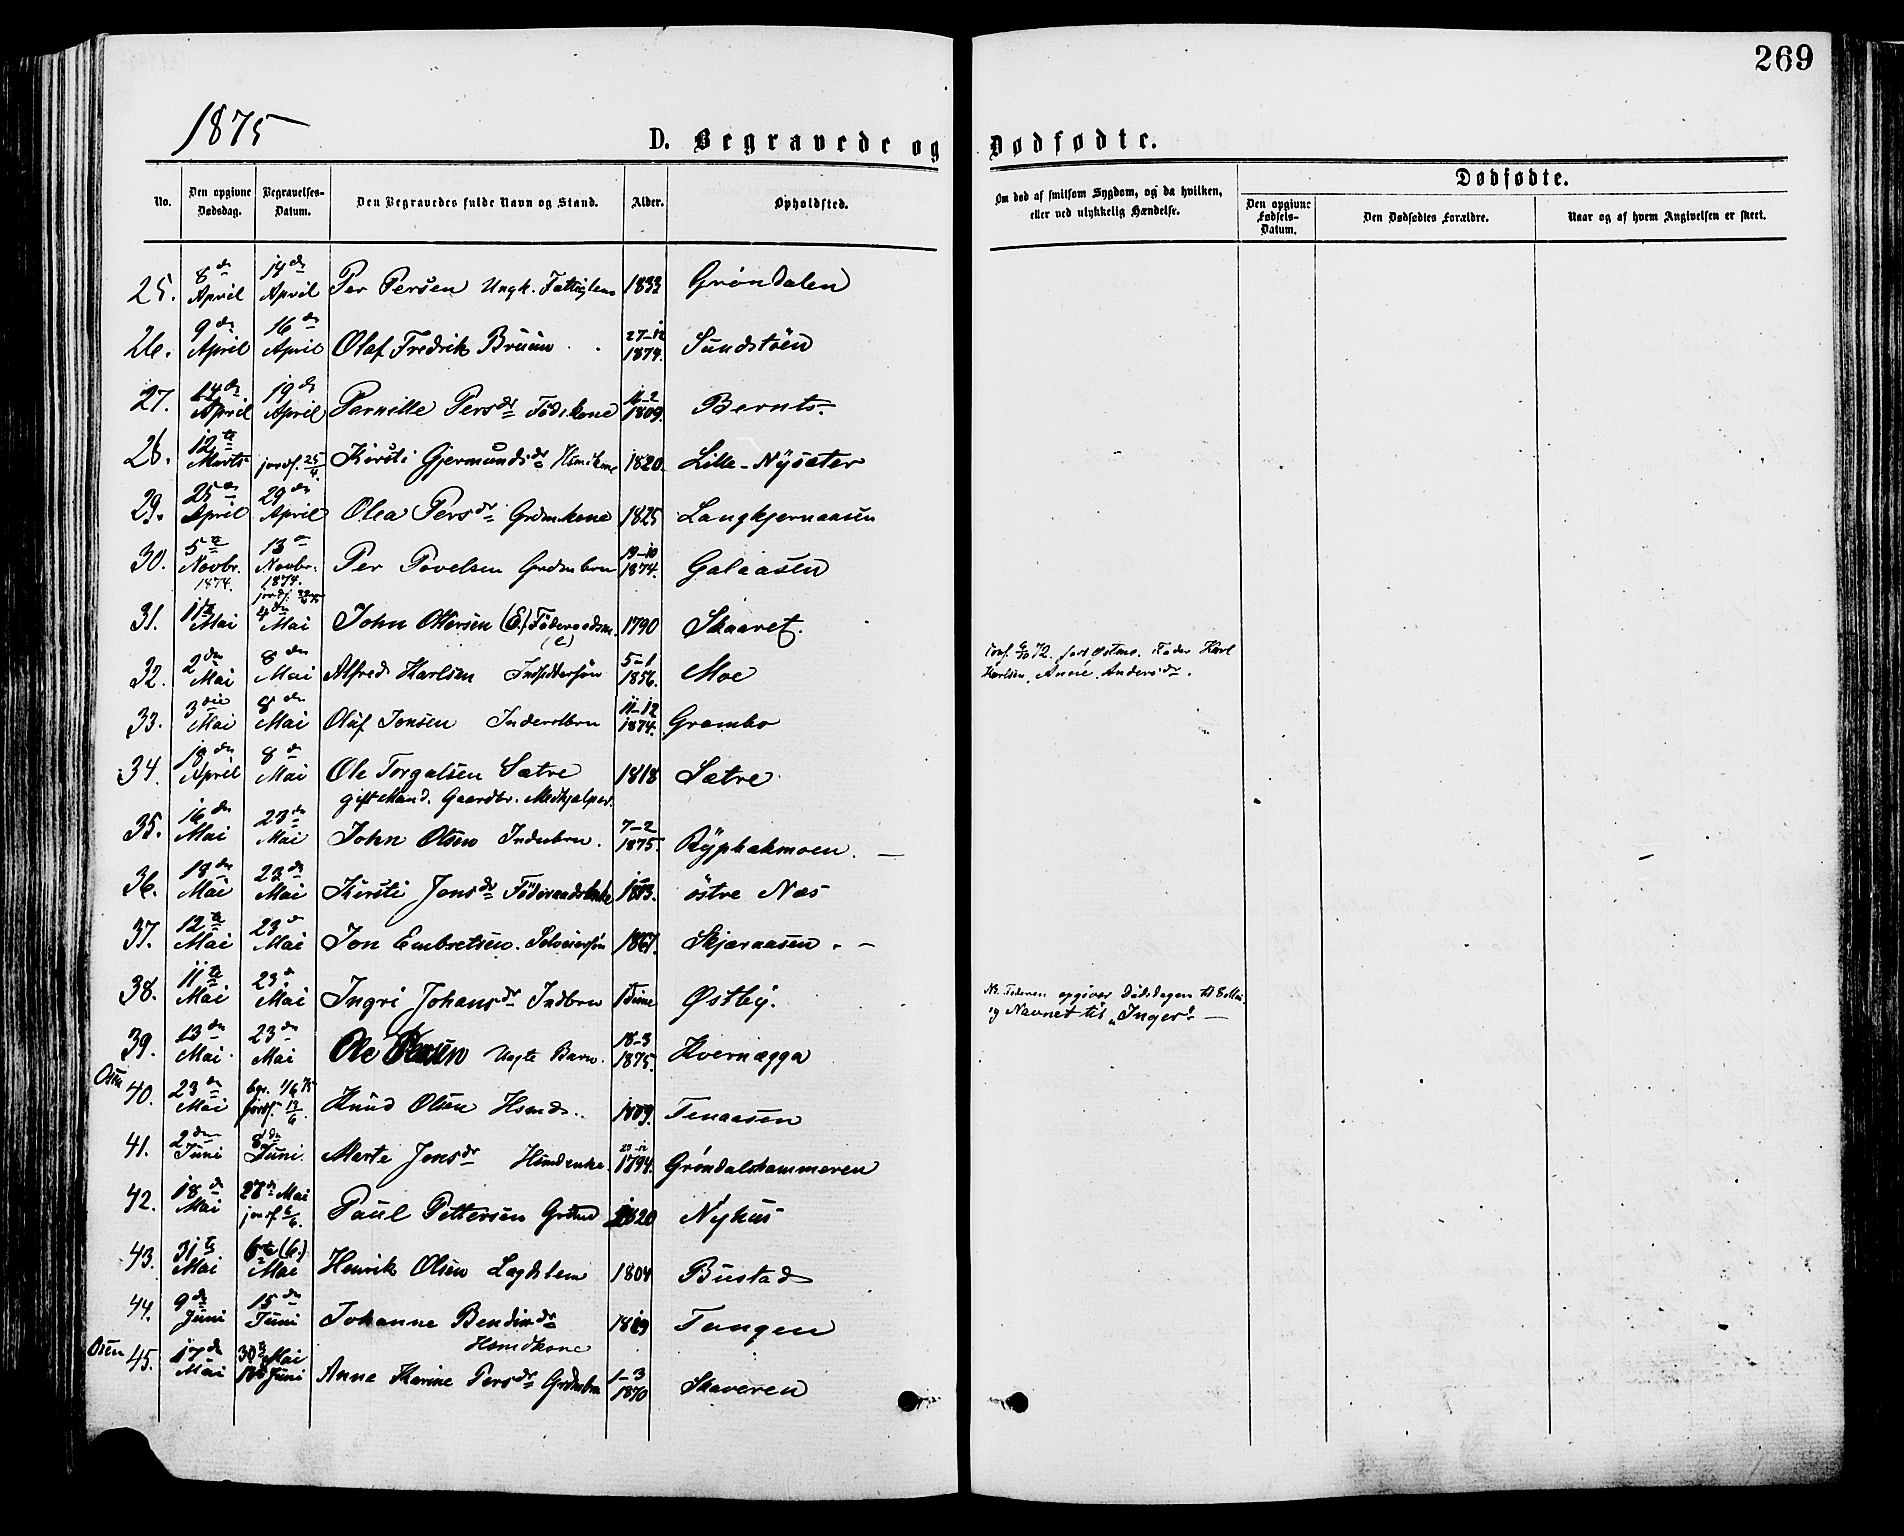 269
1875
D. Begravede og Dødfødte.
No. Den opgivne Dødsdag. Begravelses-Datum. Den Begravedes fulde Navn og Stand. Alder. Opholdsted. Om død af smitsom Sygdom, og da hvilken, eller ved ulykkelig Hændelse. Dødfødte. Den opgivne Fødsels-Datum. Den Dødfødtes Forældre. Naar og af hvem Angivelsen er skeet.
25. 8de April 14de April Per Persen Ungk. Fattiglem 1833 Grøndalen
26. 9de April 16de April Olaf Fredrik Bruun 27-12 1874. Sundstøen
27. 14de April 19de April Pernille Persdr Föd.kone 1809. Bernts
28. 12te Marts jordf. 25/4. Kirsti Gjermundsdr Hsmkone 1820. Lille-Nysæter
29. 25de April 29de April Olea Persdr Grdmkone 1825 Langkjernaasen
30. 5te Novbr. 1874. 13de Novbr. 1874. Per Povelsen Grdmbrn 19-10 1874. Galaasen
31. Mai 4de Mai John Olsen (E.) Föderaadsm. (e) 1790 Skaaret.
32. 2den Mai 8de Mai Alfred Karlsen 5-1 1856. Moe Conf. 72. Fader Karl Karlsen, Anne Andersdr.
33. 3die Mai 8de Mai Oluf Jonsen Inderstbrn 11-12 1874. Grambo
34. 18de April 8de Mai Ole Torgalsen Sætre 1818 Sætre
gift Mand. Gaardbr. Medhjælper.
35. 16de Mai 23de Mai John Olsen Inderbrn. 7-2 1875. Ryphakmoen.
36. 18de Mai 23de Mai Kirsti Jonsdr Föderaadsenke östre Næs
37. 12te Mai 23de Mai Jon Embretsen. Selveiersøn 1867. Skjæraasen.
38. 11te Mai 23de Mai Ingri Johansdr Indbrn 1 Time Østby. NB. Faderen opgiver Dødsdagen til 8 Mai og Navnet til „Inger“
39. 13de Mai 23de Mai Ole Uægte Barn. 18-3 1875. Kvernægga
Osen 40. 23de Mai beg. 1/6 75 jordf. 13/6. Knud Olsen Hsmd. 1809. Tenaasen
41. 2den Juni 8de Juni. Marte Jonsdr Hsmdenke. 1794. Grøndalshammeren
42. 18de Mai 27de Mai jordf. 6/6. Paul Pettersen Grdmd 1820 Nyhus
43. 31te Mai 6te (6.) Mai Henrik Olsen Lægdslem 1804 Bustad
44. 9de Juni 15de Juni Johanne Bendixdr Hsmdkone 1819 Tangen
Osen 45. 17de Mai 30 Mai 13 Juni Anne Karine Persdr Grdmbrn 1-3 1870 Skaveren